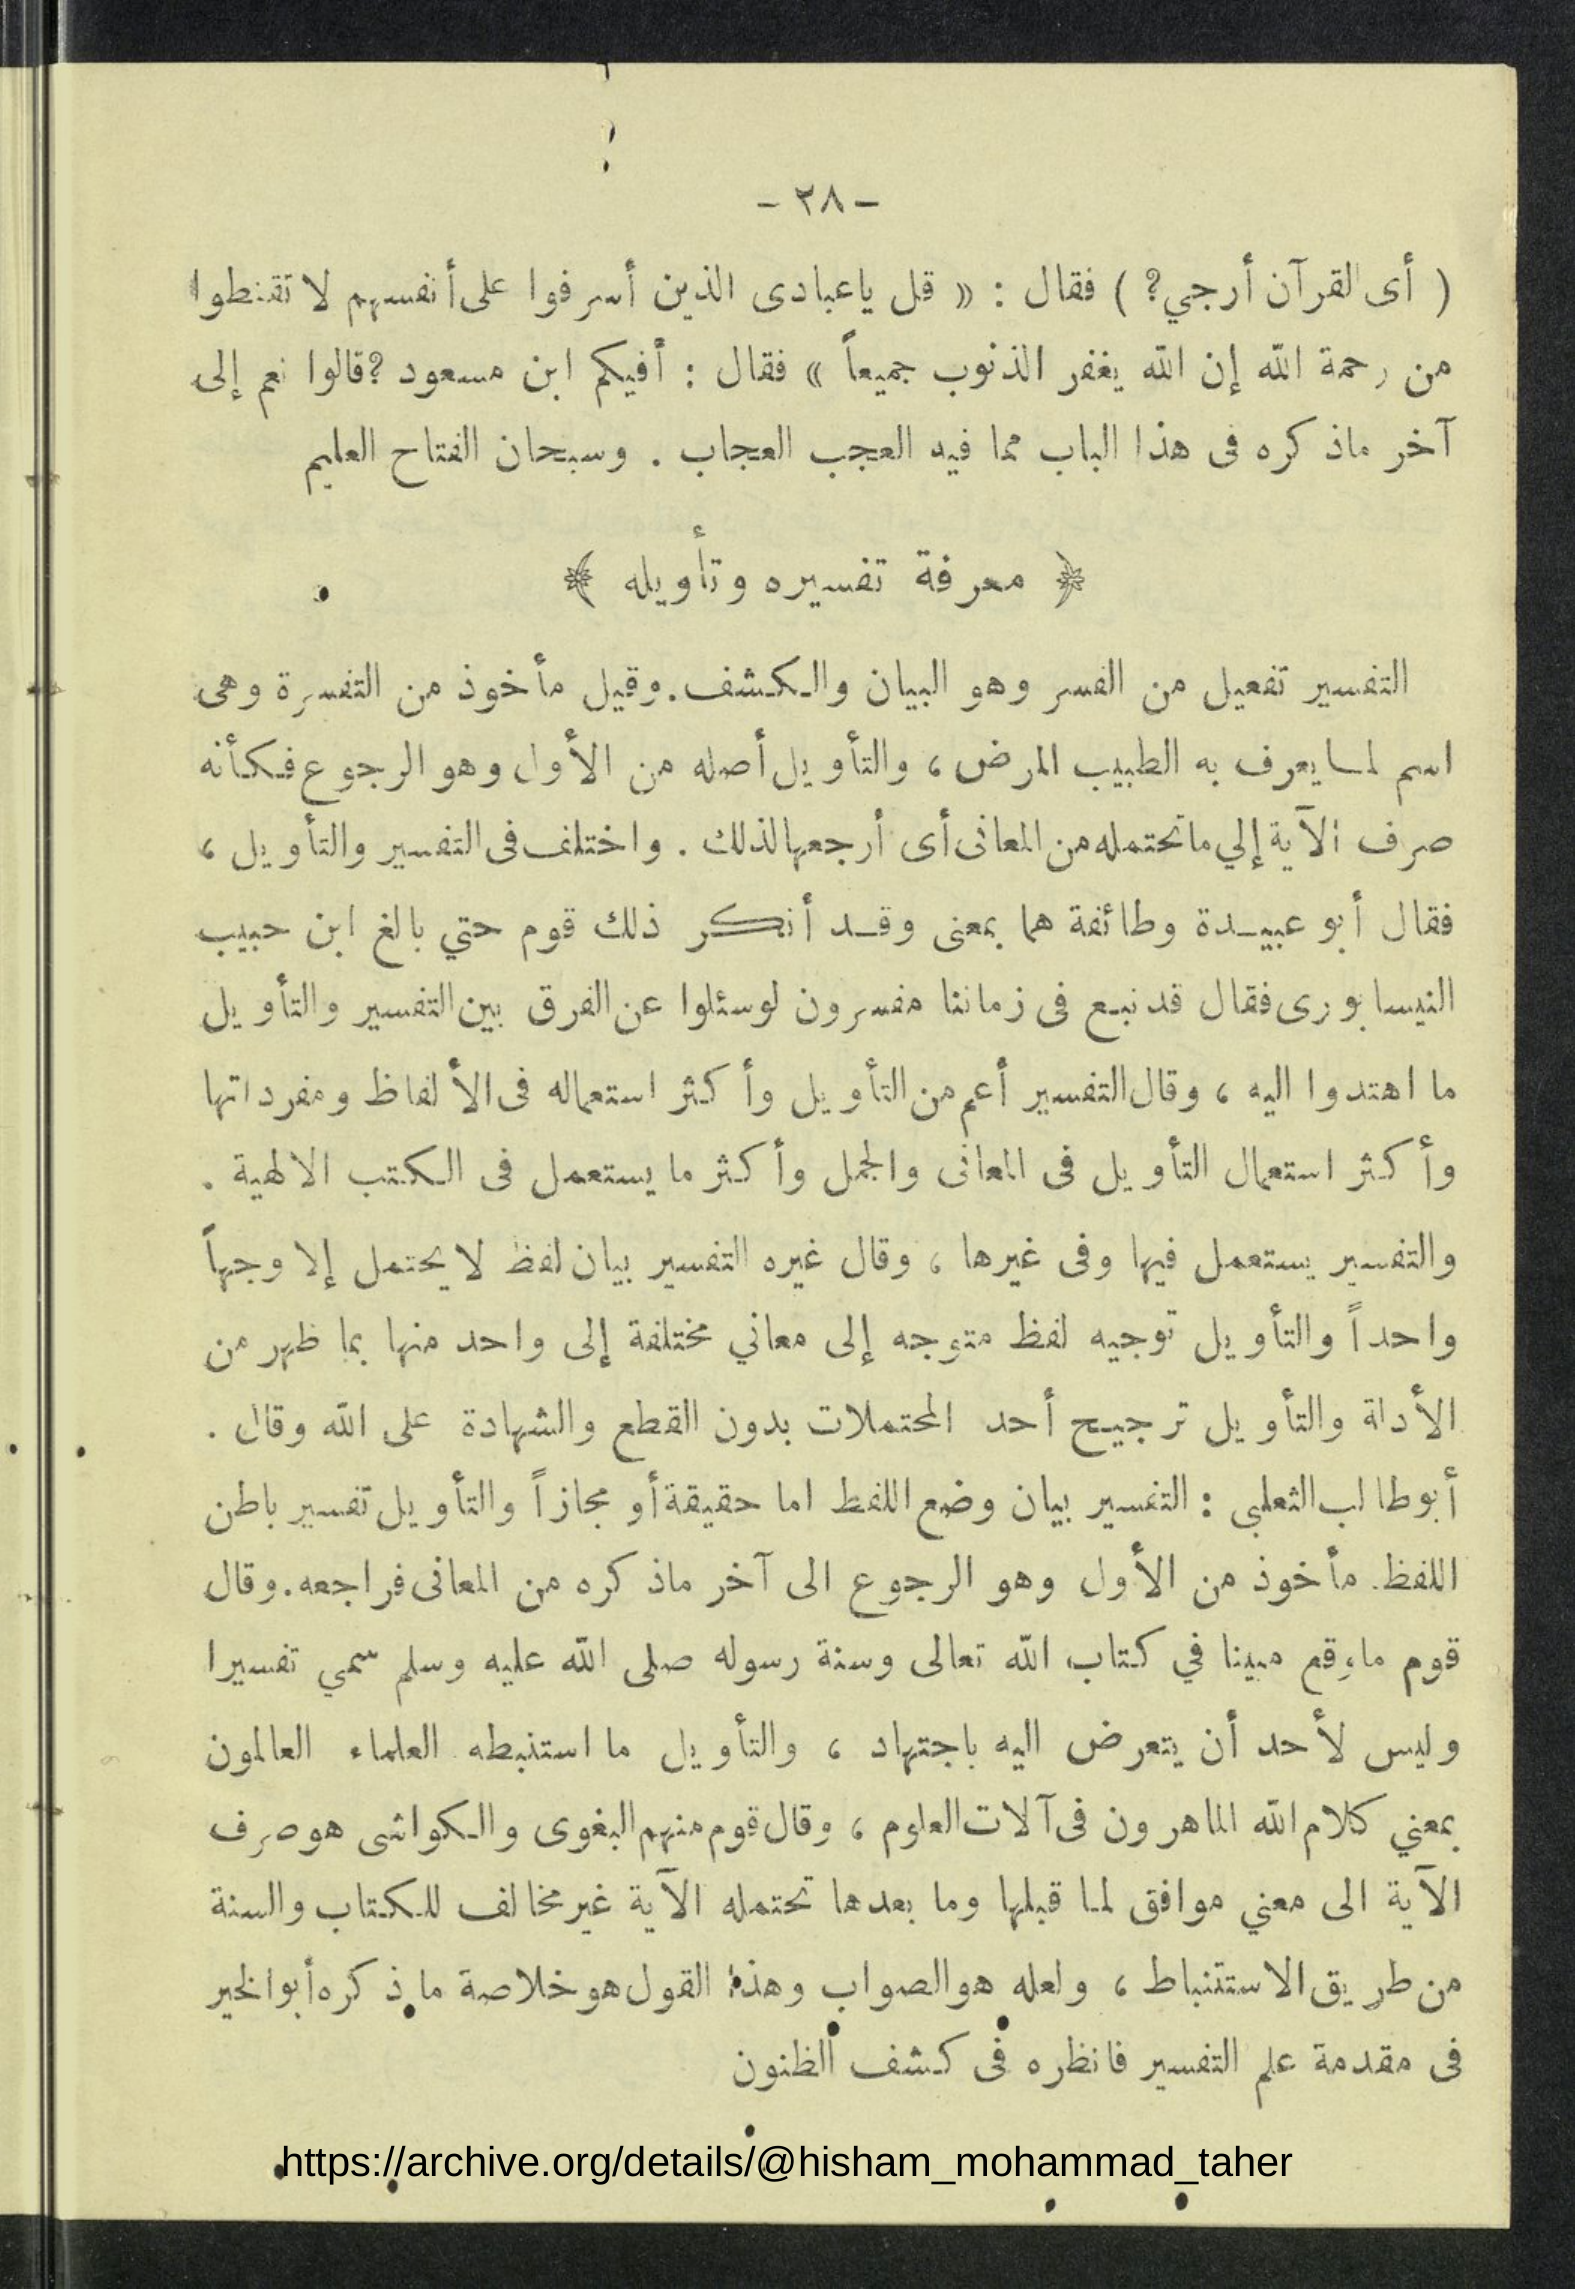 - ٣٨ -
( أى القرآن أرجي؟ ) فقال : « قل ياعبادى الذين أسرفوا على أنفسهم لا تقنطوا
من رحمة الله إن الله يغفر الذنوب جميعاً » فقال : أفيكم ابن مسعود ؟قالوا نعم إلى
آخر ماذكره فى هذا الباب مما فيه العجب العجاب . وسبحان الفتاح العليم
﴿ معرفة تفسيره وتأويله ﴾
التفسير تفعيل من الفسر وهو البيان والكشف. وقيل مأخوذ من التفسرة وهى
اسم لما يعرف به الطبيب المرض ، والتأويل أصله من الأول وهو الرجوع فكأنه
صرف الآية إلي ماتحتمله من المعانى أى أرجعها لذلك . واختلف فى التفسير والتأويل ،
فقال أبو عبيدة وطائفة هما بمعنى وقد أنكر ذلك قوم حتي بالغ ابن حبيب
النيسابورى فقال قد نبع فى زماننا مفسرون لوسئلوا عن الفرق بين التفسير والتأويل
ما اهتدوا اليه ، وقال التفسير أعم من التأويل وأكثر استعماله فى الألفاظ ومفرداتها
وأكثر استعمال التأويل فى المعانى والجمل وأكثر ما يستعمل فى الكتب الالهية .
والتفسير يستعمل فيها وفى غيرها ، وقال غيره التفسير بيان لفظ لا يحتمل إلا وجهاً
واحداً والتأويل توجيه لفظ متوجه إلى معاني مختلفة إلى واحد منها بما ظهر من
الأدلة والتأويل ترجيح أحد المحتملات بدون القطع والشهادة على الله وقال .
أبوطالب الثعلبى : التفسير بيان وضع اللفظ اما حقيقة أو مجازاً والتأويل تفسير باطن
اللفظ. مأخوذ من الأول وهو الرجوع الى آخر ماذكره من المعانى فراجعه. وقال
قوم ماوقع مبينا في كتاب الله تعالى وسنة رسوله صلى الله عليه وسلم سمي تفسيرا
وليس لأحد أن يتعرض اليه باجتهاد ، والتأويل ما استنبطه العلماء العالمون
بمعني كلام الله الماهرون فى آلات العلوم ، وقال قوم منهم البغوى والكواشى هو صرف
الآية الى معني موافق لما قبلها وما بعدها تحتمله الآية غير مخالف للكتاب والسنة
من طريق الاستنباط ، ولعله هو الصواب وهذا القول هو خلاصة ماذكره أبو الخير
فى مقدمة علم التفسير فانظره فى كشف الظنون
https://archive.org/details/@hisham_mohammad_taher